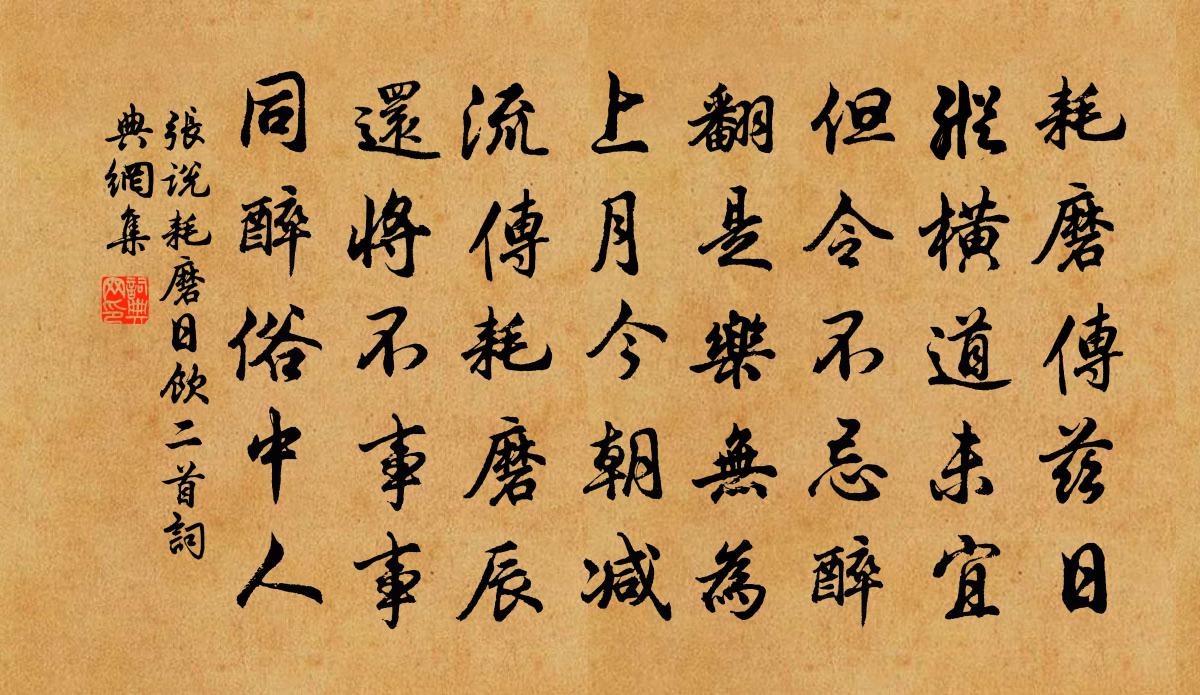 耗磨傳茲日
縱橫道未宜
但令不忌醉
翻是樂無為
上月今朝減
流傳耗磨辰
還將不事事
同醉俗中人
張説耗磨日飲二首詞
典網集
詞典
网印